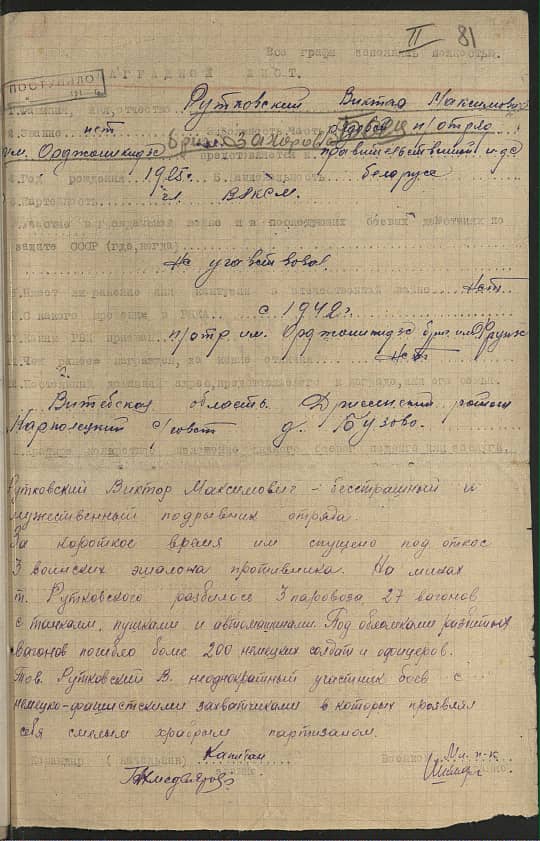 II 81
Все графы заполнять полностью.
НАГРАДНОЙ ЛИСТ.
ПОСТУПИЛО
1. Фамилия, имя, отчество Рутковский Виктор Максимович
2. Звание нет 3. Должность, часть рядовой п/отряд
им. Орджоникидзе представляется к правительственной
4. Год рождения 1925 г. 5. Национальность белорус
6. Партийность чл. ВЛКСМ.
7. Участие в гражданской войне и в последующих боевых действиях по
защите СССР (где, когда)
Не участвовал.
8. Имеет ли ранение или контузии в отечественной войне Нет
9. С какого времени в РККА с 1942 г.
10. Каким РВК призван п/отр им. Орджоникидзе бриг. им. Фрунзе
11. Чем ранее награжден, за какие отличия Нет
12. Постоянный домашний адрес представляемого к награде, или его семьи.
Витебская область Дриссенский район
с/совет д. Бузово.
Рутковский Виктор Максимович - бесстрашный и
мужественный подрывник отряда.
За короткое время им спущено под откос
3 воинских эшалона противника. На минах
т. Рутковского разбилось 3 паровоза 27 вагонов
с танками, пушками и автомашинами. Под обломками разбитых
вагонов погибло более 200 немецких солдат и офицеров.
Тов. Рутковский В. неоднократный участник боев с
немецко-фашистскими захватчиками в которых проявлял
себя смелым храбрым партизаном.
Командир (начальник) Капитан Мл. п-к